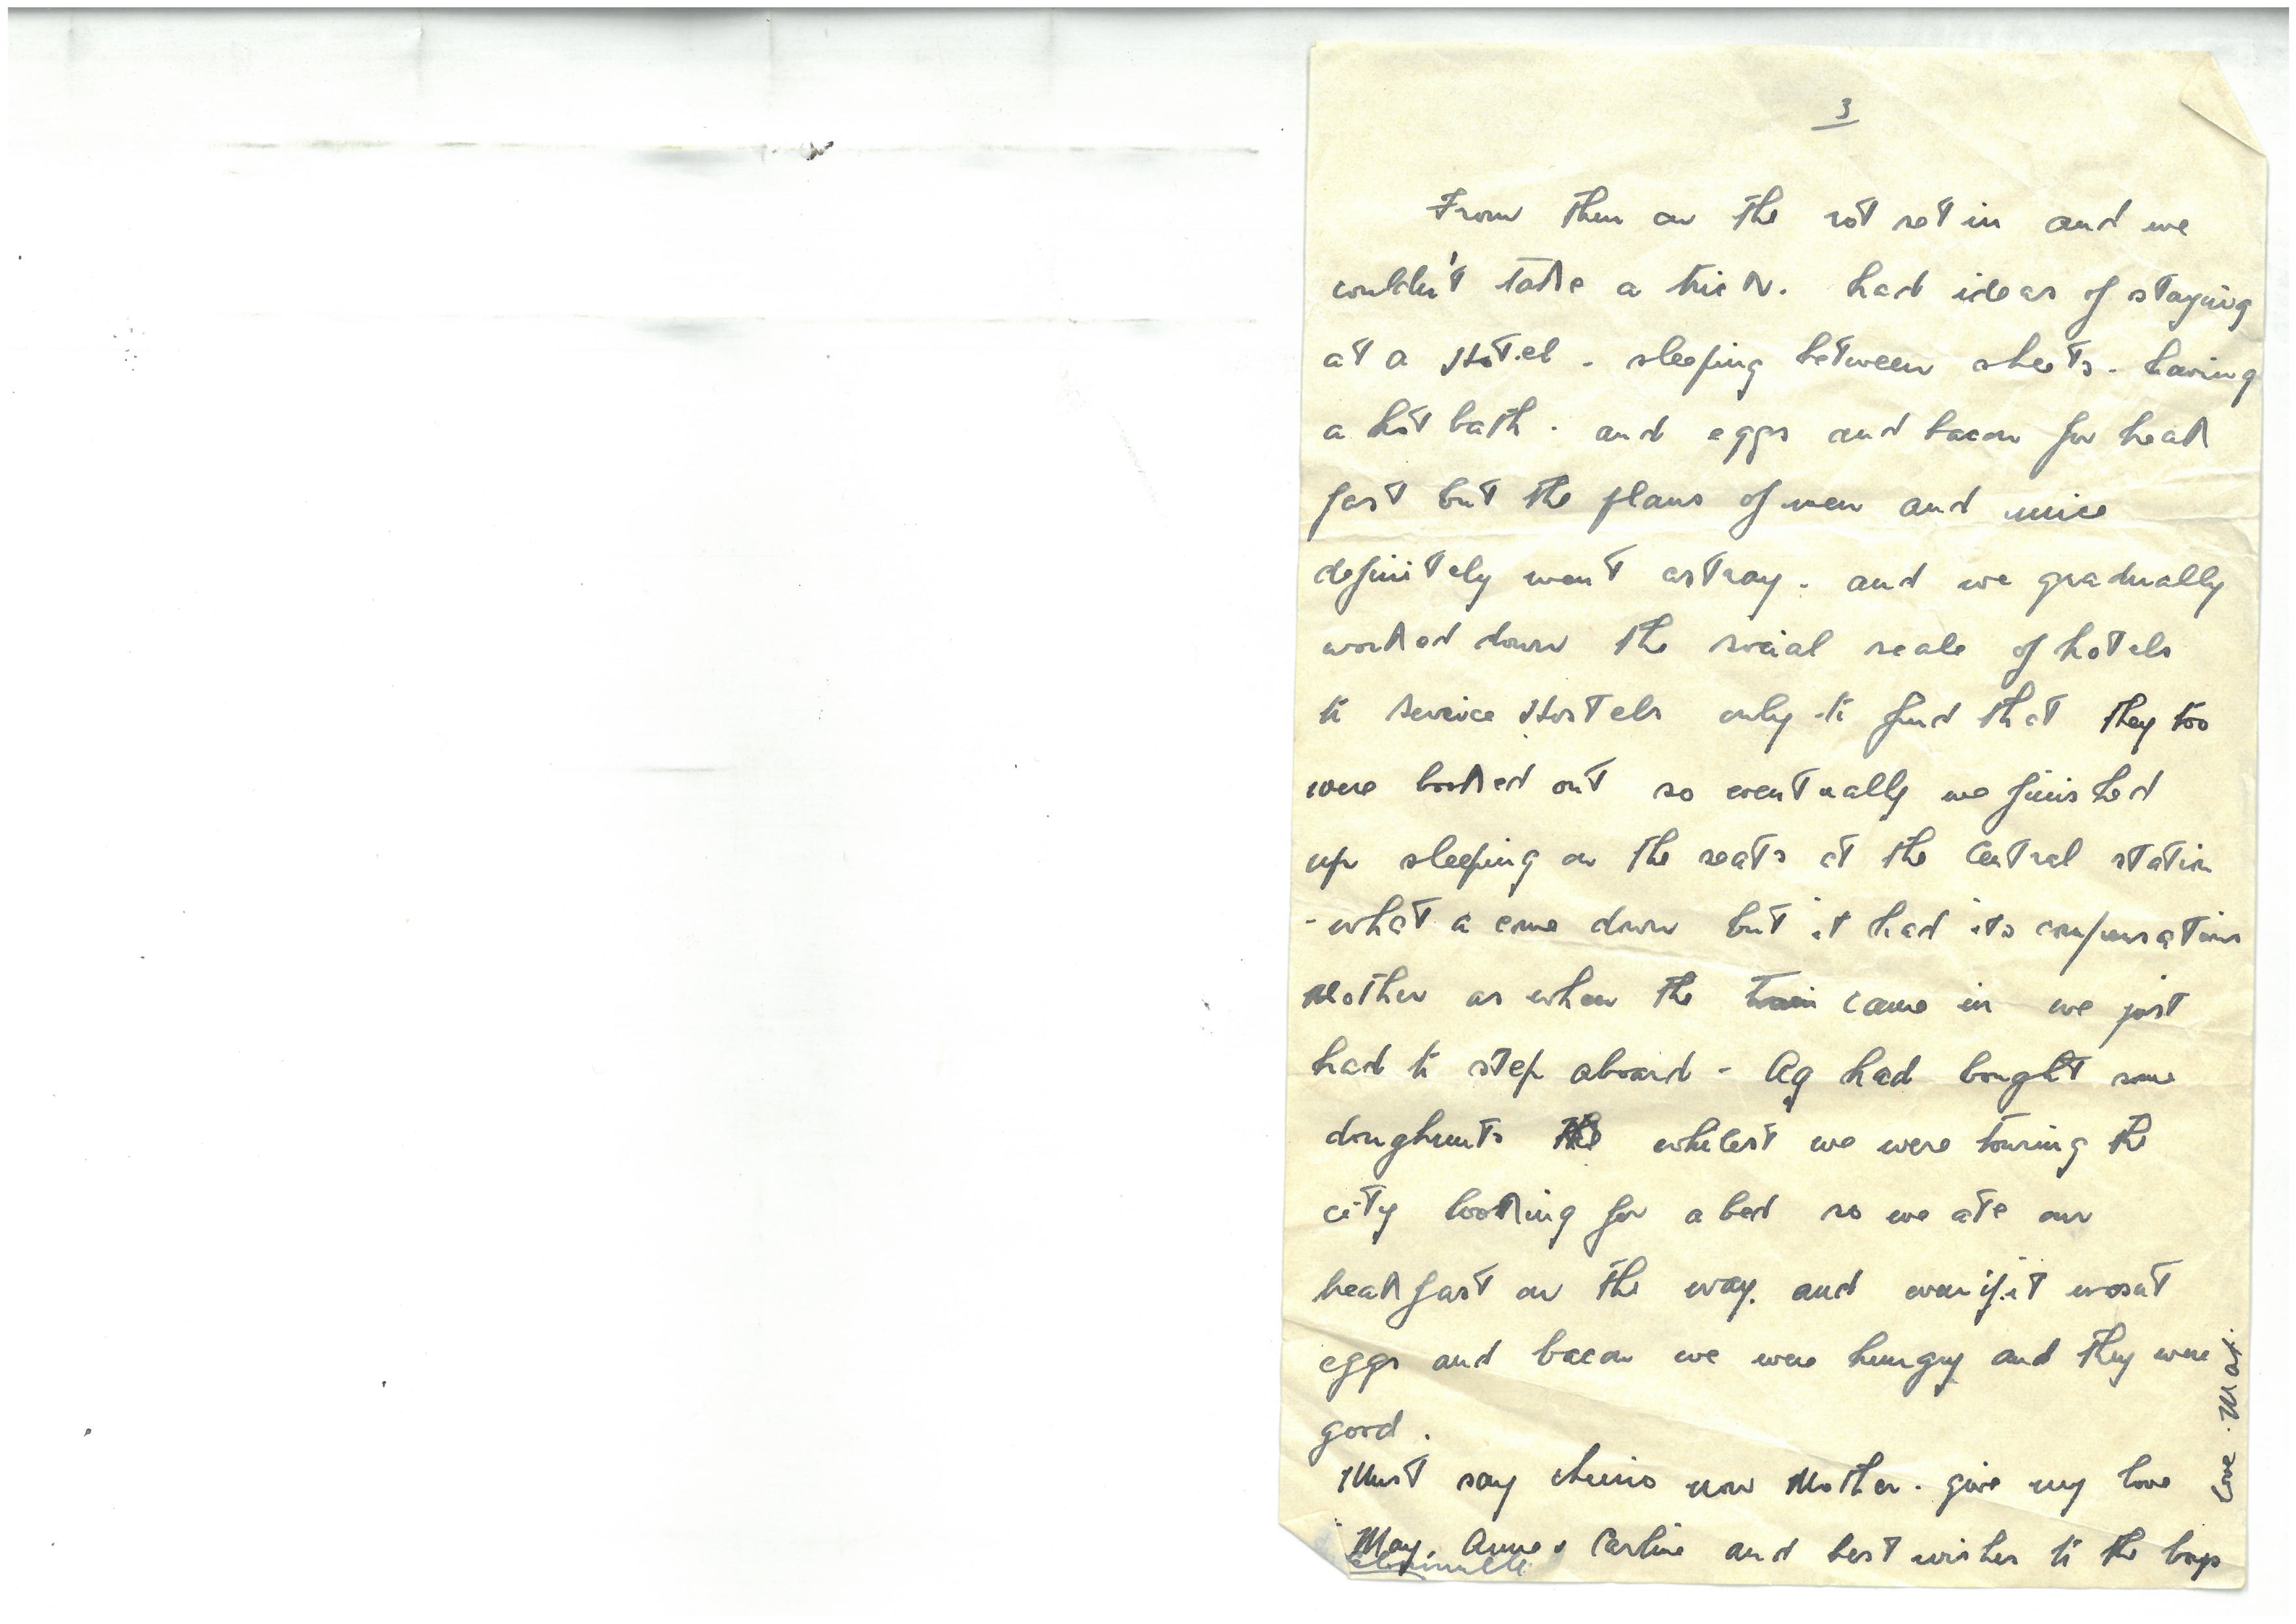 3
From then on the rot set in and we
couldn't take a trick. had ideas of staying
at a Hotel - sleeping between sheets - having
a hot bath - and eggs and bacon for break
fast but the plans of men and mice
definitely went astray - and we gradually
worked down the social scale of hotels
to Service Hostels only to find that they too
were booked out so eventually we finished
up sleeping on the seats at the Central station
- what a come down but it had its compensations
Mother as when the train came in we just
had to step aboard - Ag had bought some
doughnuts the whilest we were touring the
city looking for a bed so we ate our
breakfast on the way. and even if it wasnt
eggs and bacon we were hungry and they were
good.
Must say cheerio now Mother. give my love
May, Anne & Carline and best wishes to the boys
Love. Max.